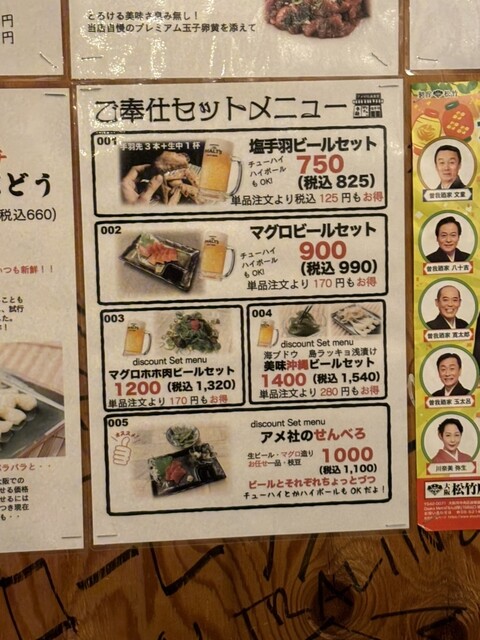 円
円
とろける美味さ息無し!
当店自慢のプレミアム玉子卵黄を添えて
ご奉仕セットメニュー
001
手羽先3本+生中1杯
塩手羽ビールセット
チューハイ
ハイボール
もOK!
750
(税込 825)
単品注文より税込 125 円もお得
002
マグロビールセット
チューハイ
ハイボール
もOK!
900
(税込 990)
単品注文より 170 円もお得
003
discount Set menu
マグロホホ肉ビールセット
1200 (税込 1,320)
単品注文より 170 円もお得
004
discount Set menu
海ブドウ 島ラッキョ浅漬け
美味沖縄ビールセット
1400 (税込 1,540)
単品注文より 280 円もお得
005
discount Set menu
アメ社のせんべろ
生ビール・マグロ造り
お任せ一品・枝豆
1000
(税込 1,100)
ビールとそれぞれちょっとづつ
チューハイとかハイボールも OK だよ!
どう
税込660)
いつも新鮮!!
ことも
、試行
した。
パラパラと・・
大阪での
せる価格
せるには
つき現在
曽我廼家 文童
曽我廼家 八十吉
曽我廼家 寛太郎
曽我廼家 玉太呂
川奈美 弥生
松竹